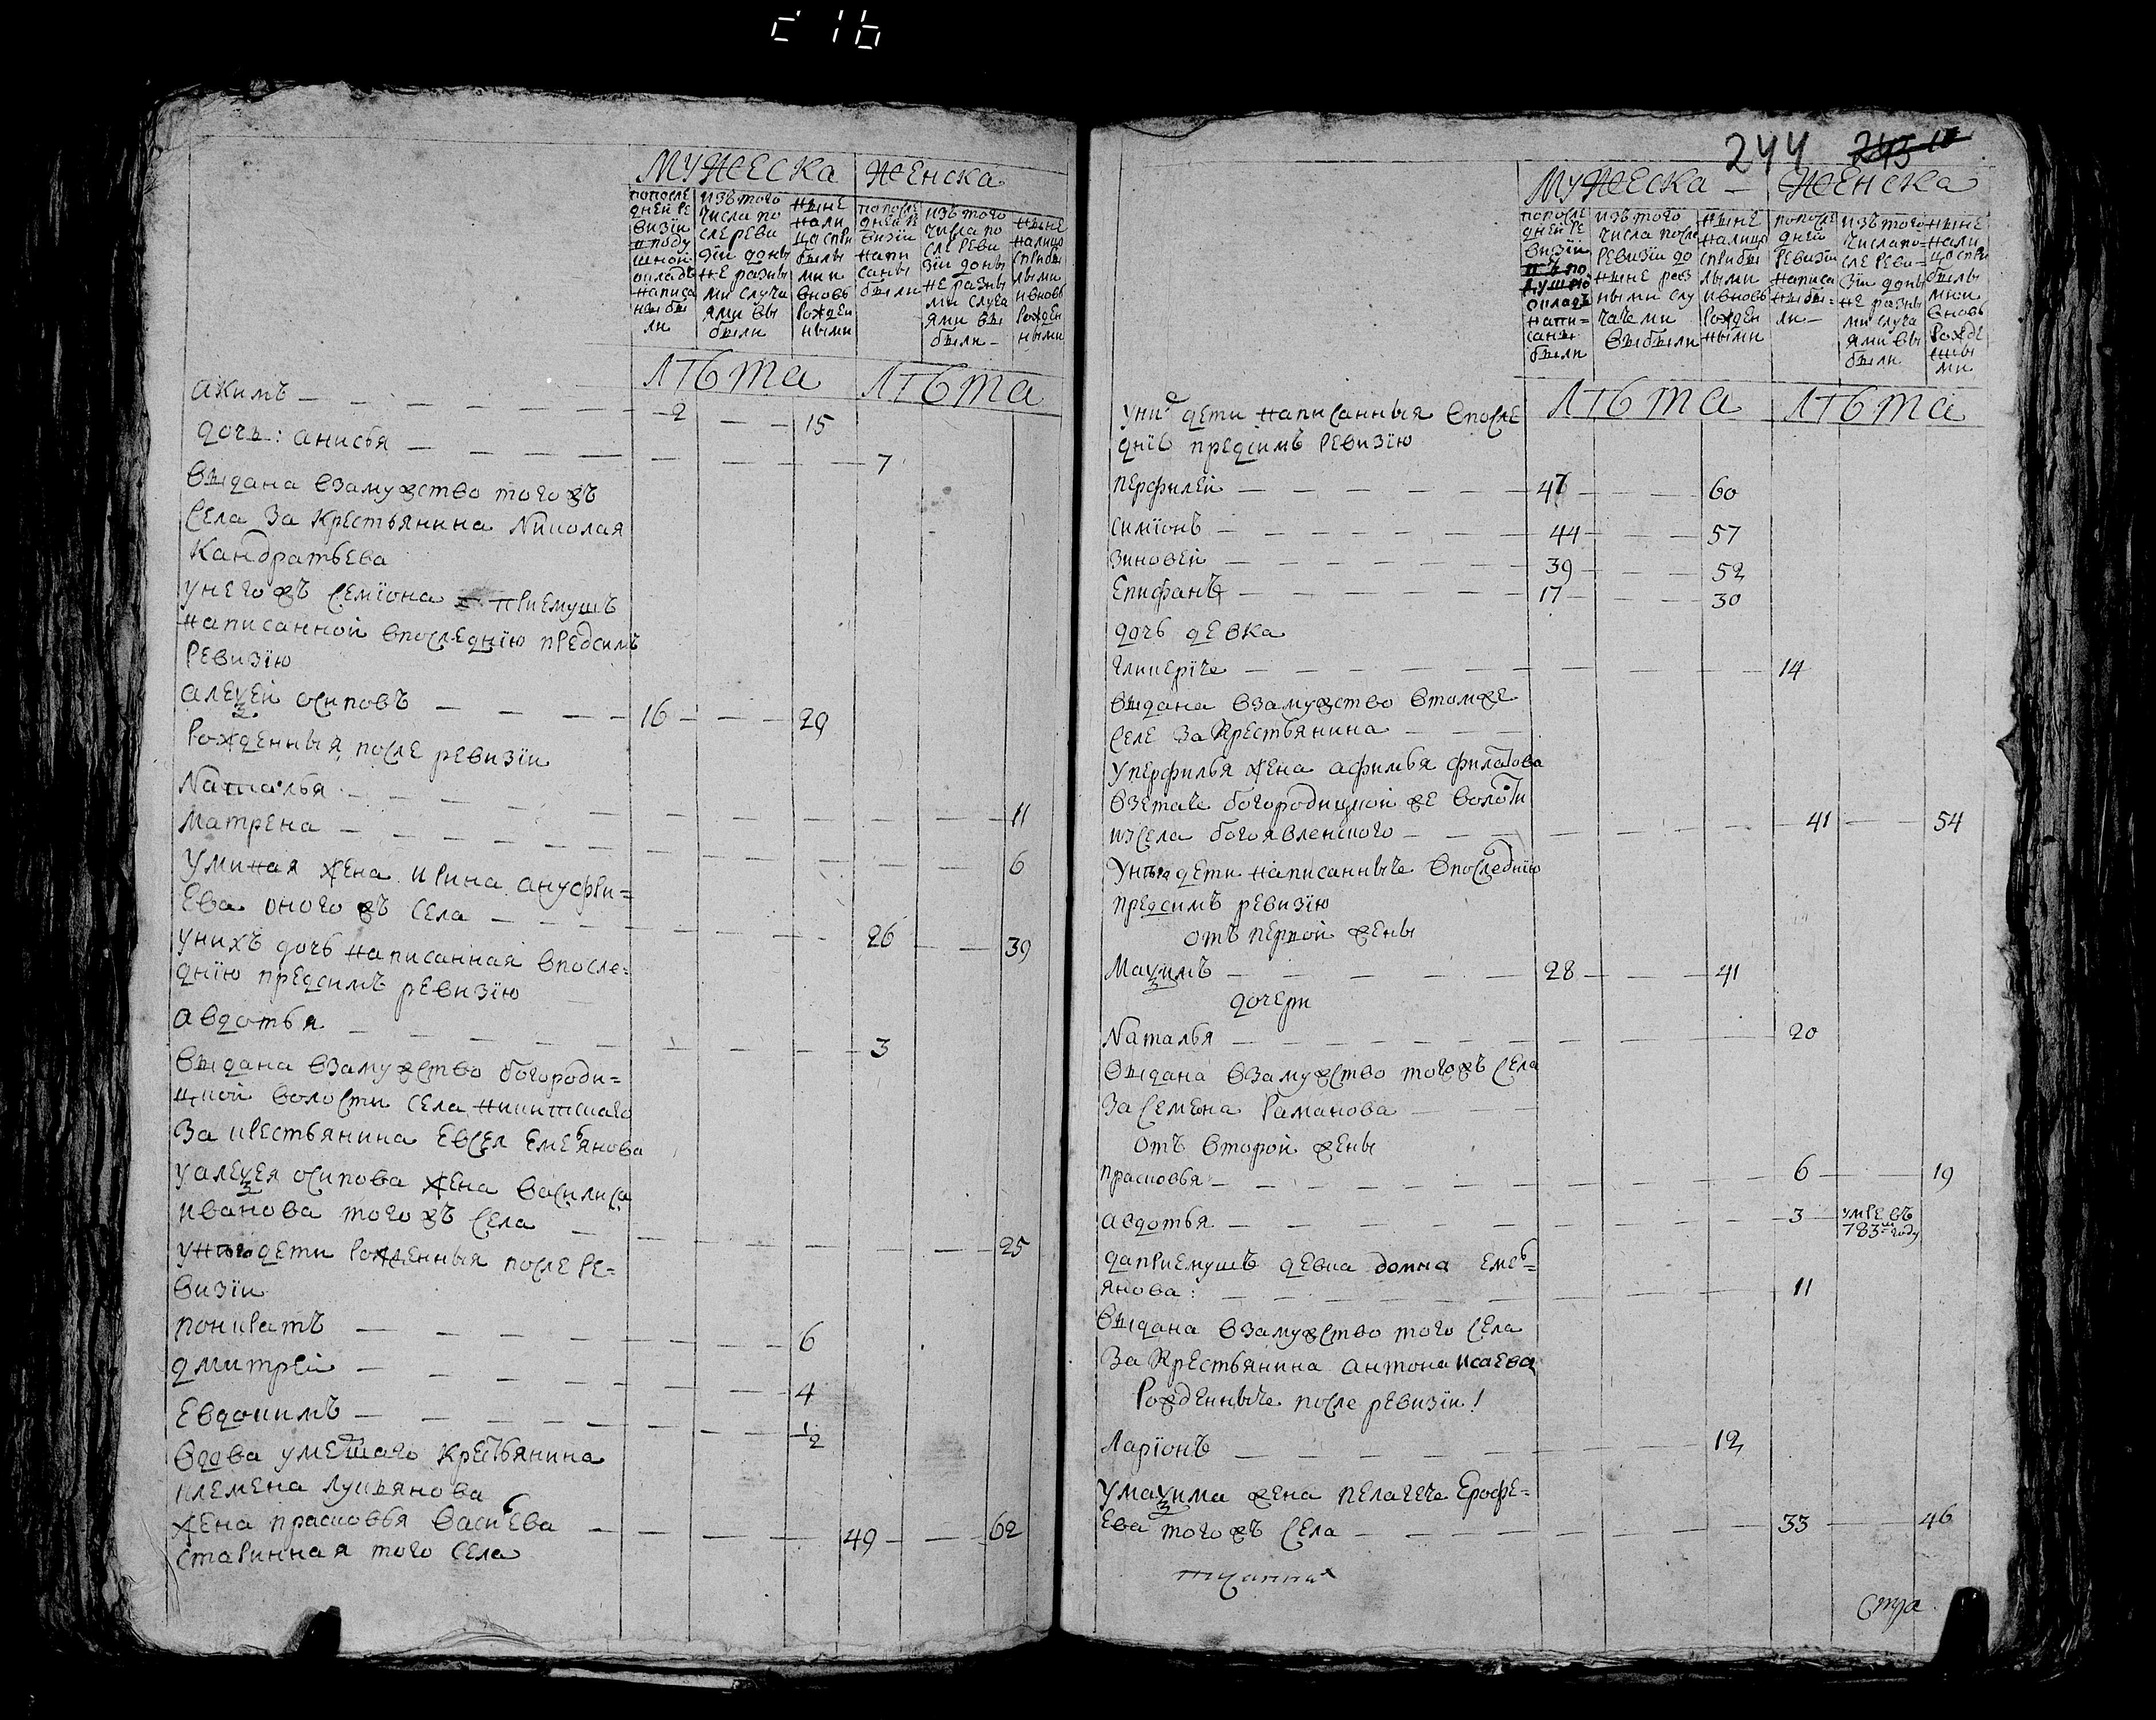 МУЖЕСКА ЖЕНСКА
попосле
дней ре
визїи
вподу
шной
окладъ
написа
ны бы
ли
изътого
числа по
сле реви
зїи доны
не разны
ми случа
ями вы
были
ныне
нали
цо спри
былы
ми и
вновь
рожден
ными
попосле
дней ре
визїи
напи
саны
были
изътого
числа по
сле реви
зїи доны
не разны
ми случа
ями вы
были
ныне
налицо
сприбы
лыми
ивновь
рожден
ными
ЛѢта ЛѢта
акимъ 2 15
дочь: анисья 7
выдана взамужство тогожъ
села за крестьянина Николая
Кандратьева
унегожъ семїона приемушъ
написанной впоследнїю предсимъ
ревизїю
алеѯей осиповъ 16 29
рожденныя после ревизїи
Наталья 11
матрена 6
уминая жена ирина ануфри=
ева оногожъ села 26 39
унихъ дочь написанная впосле=
днїю предсимъ ревизїю
авдотья 3
выдана взамужство богороди=
цкой волости села никитскаго
за крестьянина евсея емельянова
уалеѯея осипова жена василиса
иванова тогожъ села 25
унего дети рожденныя после ре=
визїи
поникатъ 6
дмитрей 4
евдокимъ 1/2
вдова умершаго крестьянина
клемена лукьянова
жена прасковья васильева 49 62
старинная того села
244 243 18
МУЖЕСКА — ЖЕНСКА
попосле
дней ре
визїи
въ по
душно
окладъ
напи=
саны
были
изъ того
числа после
ревизїи до
ныне раз
ными слу
чаеми
выбыли
ныне
налицо
сприбы
лыми
ивновь
рожден
ными
попосле
дней
ревизїи
написа
ны бы=
ли
изъ того
числа по=
сле реви=
зїи доны
не разны
ми случа
ями вы
были
ныне
нали
цо спри
былы
ми и
вновь
рожде
ны
ми
ЛѢта ЛѢта
уних дети написанныя впосле
днїю предсимъ ревизїю
перфилей 47 60
симїонъ 44 57
зиновей 39 52
епифанъ 17 30
дочь девка
гликерїче 14
выдана взамужство втомже
селе за крестьянина
уперфилья жена афимья филатова
взетаче богородицкой же волости
изсела богоявленского 41 54
унего дети написанныче впоследнїю
предсимъ ревизїю
отъ первой жены
Маѯимъ 28 41
дочери
Наталья 20
выдана взамужство тогожъ села
за семена Раманова
отъ второй жены
прасковья 6 19
авдотья 3 умре въ 783м году
даприемушъ девка домна емель=
янова: 11
выдана взамужство того села
за крестьянина антона исаева
рожденныче после ревизїи!
Ларїонъ 12
умаѯима жена пелагече ерофе=
ева тогожъ села 33 46